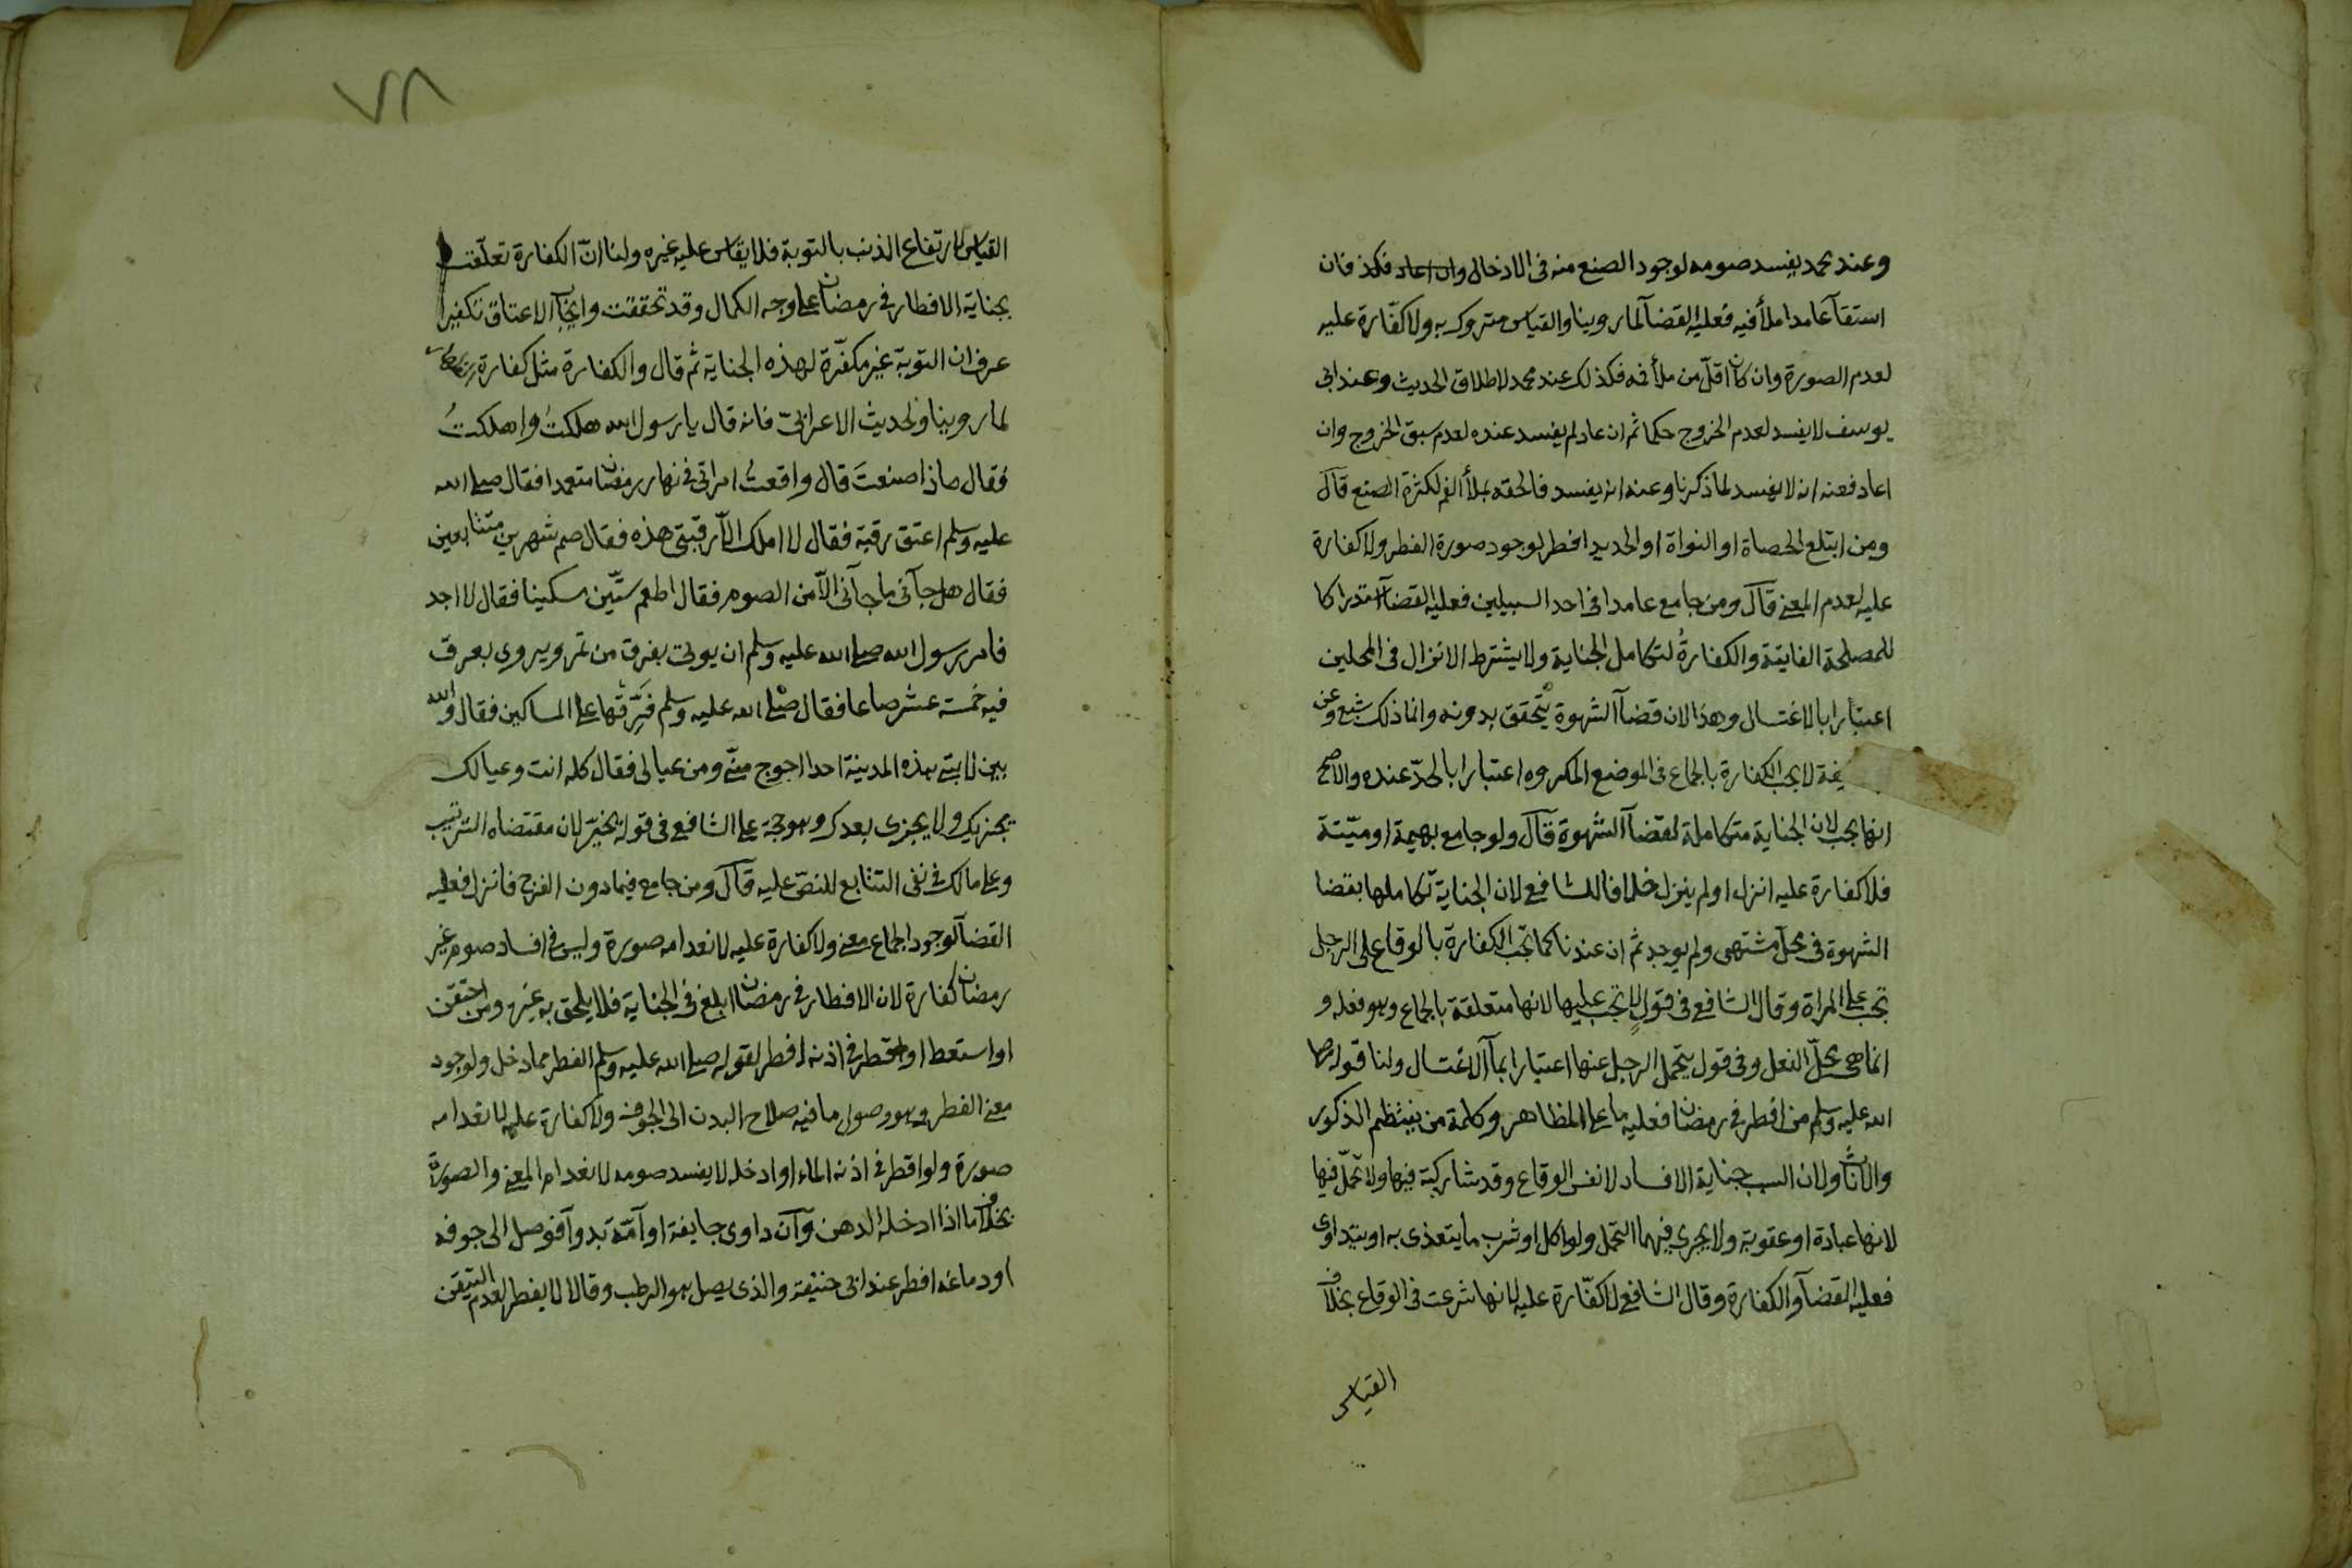 وعند محمد يفسد صومه لوجود الصنع منه فى الادخال وان اعاد فكذ فان
استقآ عامدا ملأ فيه فعليه القضآ لما روينا والقياس متروك به ولا كفّارة عليه
لعدم الصورة وان كان اقلّ من ملأ فه فكذلك عند محمد لاطلاق الحديث وعند ابى
يوسف لا يفسد لعدم الخروج حكما ثم ان عاد لم يفسد عنده لعدم سبق الخروج وان
اعاد فعنه انه لا يفسد لما ذكرنا وعنه انه يفسد فالحقه بملأ الفم لكثرة الصنع قال
ومن ابتلع الحصاة او النواة او الحديد افطر لوجود صورة الفطر ولا كفارة
عليه لعدم المعنى قال ومن جامع عامدا فى احد السبيلين فعليه القضآ استدراكا
للمصلحة الفايتة والكفارةُ لتكامل الجناية ولا يشترط الانزال فى المحلين
اعتبارا بالاغتسال وهذا لان قضآ الشهوة يتحقق بدونه وانما ذلك شبع وعن
يفة لا يجب الكفارة بالجماع فى الموضع المكروه اعتبارا بالحدّ عنده والاصح
انها يجب لان الجناية متكاملة لقضآ الشهوة قال ولو جامع بهيمة او ميّتة
فلا كفارة عليه انزل او لم ينزل خلافا للشافعى لان الجناية تكاملها بقضا
الشهوة فى محلّ مشتهى ولم يوجد ثم ان عندنا كما تجب الكفارة بالوقاع على الرجل
تجب على المراة وقال الشافعى فى قولٍ لا تجب عليها لانها متعلقة بالجماع وهو فعله و
انما هى محلّ الفعل وفى قول يتحمل الرجل عنها اعتبارا بمآ الاغتسال ولنا قوله صلى
الله عليه وسلم من افطر فى رمضان فعليه ما على المظاهر وكلمة من ينتظم الذكور
والاناث ولان السبب جناية الافساد لا نفس الوقاع وقد شاركته فيها ولا تحمّل فيها
لانها عبادة او عقوبة ولا يجرى فيهما التحمل ولو اكل او شرب ما يتغذى به او يتداوى
فعليه القضآ والكفارة وقال الشافعى لا كفّارة عليه لانها شرعت فى الوقاع بخلاف
القياس
٧٨
القياس لارتفاع الذنب بالتوبة فلا يقاس عليه غيره ولنا انّ الكفارة تعلّقت
بجناية الافطار فى رمضان على وجه الكمال وقد تحققت وايجاب الاعتاق تكفيرا
عرف ان التوبة غير مكفّرة لهذه الجناية ثم قال والكفارة مثل كفارة
لما روينا ولحديث الاعرابىّ فانه قال يا رسول الله هلكتُ واهلكتُ
فقال ماذا صنعتَ قال واقعتُ امراتى فى نهار رمضان متعمدا فقال صلى الله
عليه وسلم اعتق رقبة فقال لا املك الّا رقبتى هذه فقال صم شهرين متتابعين
فقال هل جآنى ما جآنى الّا من الصوم فقال اطعم ستّين مسكينا فقال لا اجد
فامر رسول الله صلى الله عليه وسلم ان يوتى بفرق من تمر ويروى بعرق
فيه خمسة عشر صاعا فقال صلى الله عليه وسلم فَرِّقها على المساكين فقال والله
بين لابتى هذه المدينة احدا احوج منّى ومن عيالى فقال كله انت وعيالك
يجزيك ولا يجزى بعدك وهو حجة على الشافعى فى قوله يخيّر لان مقتضاه الترتيب
وعلى مالك فى نفى التتابع للنصّ عليه قال ومن جامع فيما دون الفرج فانزل فعليه
القضآ لوجود الجماع معنى ولا كفارة عليه لانعدامه صورة وليس فى افساد صوم غير
رمضان كفارة لان الافطار فى رمضان ابلغ فى الجناية فلا يلحق به غيره ومن احتقن
او استعط او اقطر فى اذنه افطر لقوله صلى الله عليه وسلم الفطر مما دخل ولوجود
معنى الفطر وهو وصول ما فيه صلاح البدن الى الجوف ولا كفارة عليه لانعدامه
صورة ولو اقطر فى اذنه الماء او ادخله لا يفسد صومه لانعدام المعنى والصورة
بخلاف ما اذا ادخله الدهن وان داوى جايفة او آمّة بدوآ فوصل الى جوفه
او دماغه افطر عند ابى حنيفة والذى يصل هو الرطب وقالا لا يفطر لعدم التيقن